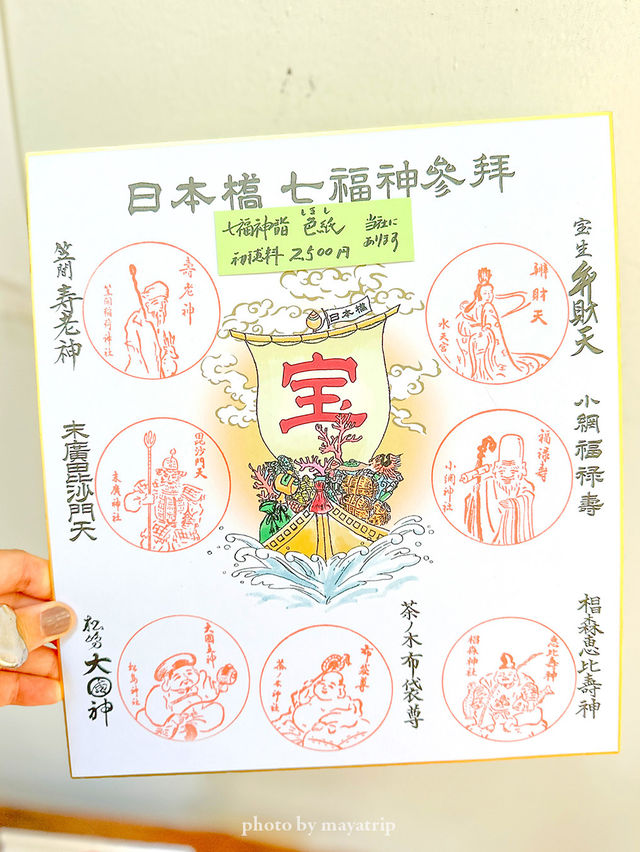 日本橋 七福神參拜
七福神詣 色紙 しきし 当社に
あります
初穂料 2,500円
宝生弁財天
辨財天
水天宮
小網福禄壽
福禄寿
小網神社
椙森恵比壽神
恵比寿神
椙森神社
茶ノ木布袋尊
布袋尊
茶ノ木神社
松嶋大國神
大國主神
松島神社
末廣毘沙門天
毘沙門天
末廣神社
笠間壽老神
寿老神
笠間稲荷神社
日本橋
宝
photo by mayatrip